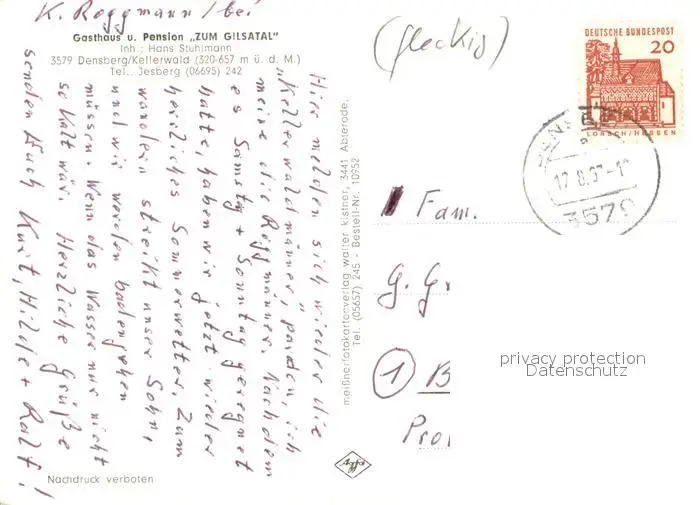 K. Roggmann / bei
Gasthaus u. Pension „ZUM GILSATAL"
Inh.: Hans Stuhlmann
3579 Densberg/Kellerwald (320-657 m ü. d. M.)
Tel. Jesberg (06695) 242
Hier melden sich wieder die
"Kellerwaldmänner," pardon, ich
meine die Roggmänner. Nachdem
es Samstag + Sonntag geregnet
hatte, haben wir jetzt wieder
herrliches Sommerwetter. Zum
wandern streikt unser Sohn,
und wir würden baden gehen
müssen. Wenn das Wasser nur nicht
so kalt wär. Herzliche Grüße
senden Euch Kurt, Hilde + Ralf!
Nachdruck verboten
meißnerfotokartenverlag walter kistner, 3441 Abterode,
Tel. (05657) 245 - Bestell-Nr. 10952
Agfa
(fleckig)
DEUTSCHE BUNDESPOST
20
LORSCH/HESSEN
3579
Fam.
G. Gr
1 B
privacy protection
Datenschutz